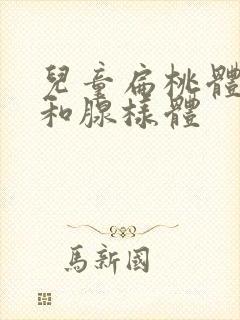 兒童扁桃體
和腺樣體
馬新國